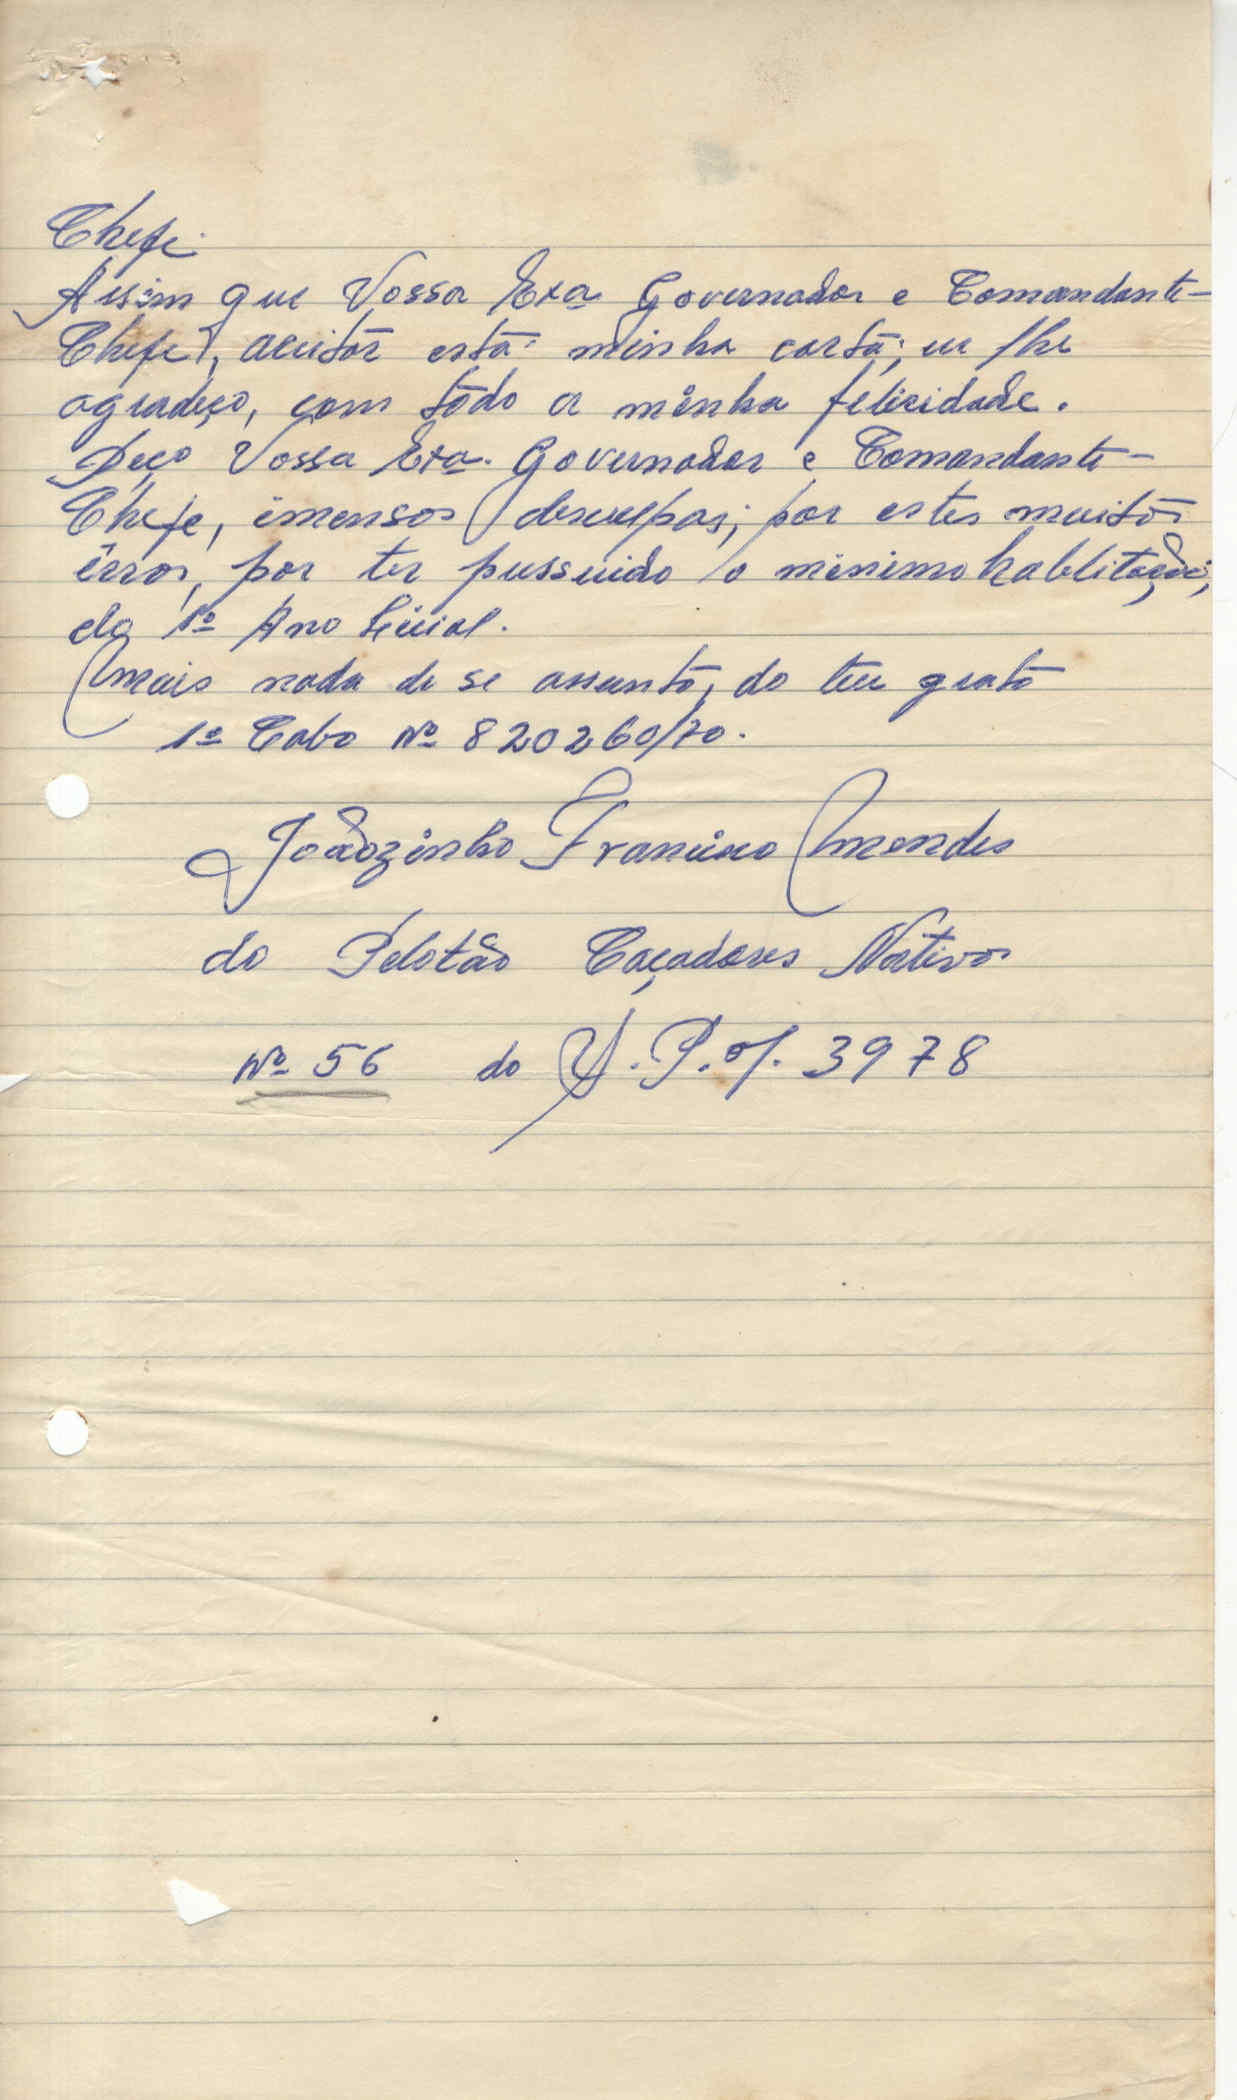 Chefe.
Assim que Vossa Exa Governador e Comandante-
Chefe, aceitar esta minha carta; eu lhe
agradeço, com tôdo a minha felicidade.
Peço Vossa Exa. Governador e Comandante-
Chefe, imensos desculpas; por estes muitos
êrros, por ter pussuido o minimo habilitação,
do 1º Ano Liüial.
Mais nada de se assunto, do teu grato
1º Cabo Nº 820260/70.
Joãozinho Francisco Mendes
do Pelotão Caçadores Nativos
Nº 56 do S.P.M. 3978